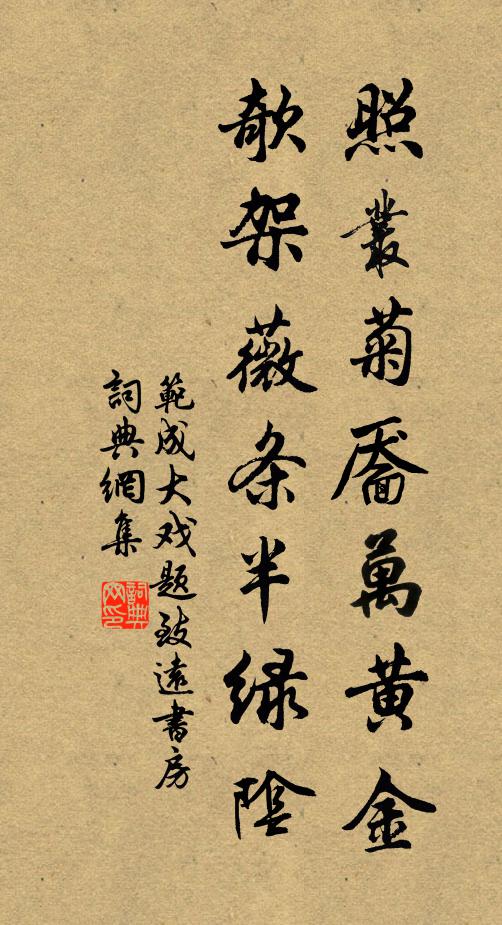 照叢菊靥萬黄金
欹架薇条半緑陰
範成大戏题致遠書房
詞典網集
詞典网印